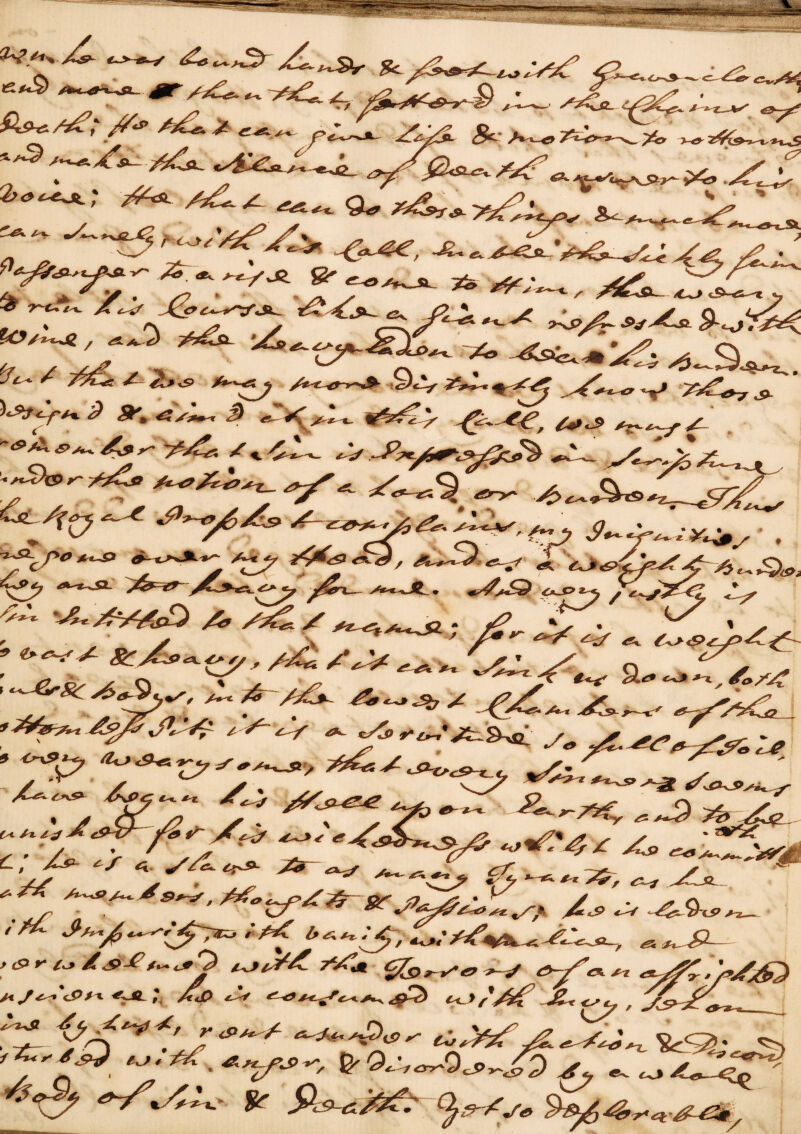 wn he was bound hands & feet with Grave-cloaths
and more than that, fetter'd in the Chains of
Death; He that can give Life & motion to rottenness
and make the Silence of Death answer to his
Voice; He that can do these things & much more,
can surely, with his Call, enable the sickly fain
Passenger to arise & come to Him, the weary
to run his Course like a Giant refreshed with
Wine, and the heavy-Laden to bear his Burden.
But that we may more distinctly know those
design'd & aim'd at in this Call, we must
remember that Sin is Expressed in Scripture
under the notion of a Load or Burden. Thus
he Royal Prophet complains, my Iniquities
re gone over my Head, and as a weighty Burden
hey are too heavy for me. And very justly is
Sin Entitled to that name; for it is a weight
o vast & heavy, that it can sink us down, both
ouls & Bodys, into the lowest Chambers of the
ottomless Pit; it is a Servitude so full of Toil,
o very wearysome, that every Sinner seems
have begun his Hell upon Earth, and to be
unished for his wickedness whilst he committeth
t; he is a slave to as many Tyrants, as he
ath members, thoughts & Passions; he is laden
ith Impurity, with vanity, with malice, and
verwhelmed with the Terrors of an affrighted
nscience; he is consumed with Envy, set on
ire by Lust, rent asunder with faction & Discord,
isturbed with anger, & disordered by a whole
Body of Sin & Death. Yet so deplorable,